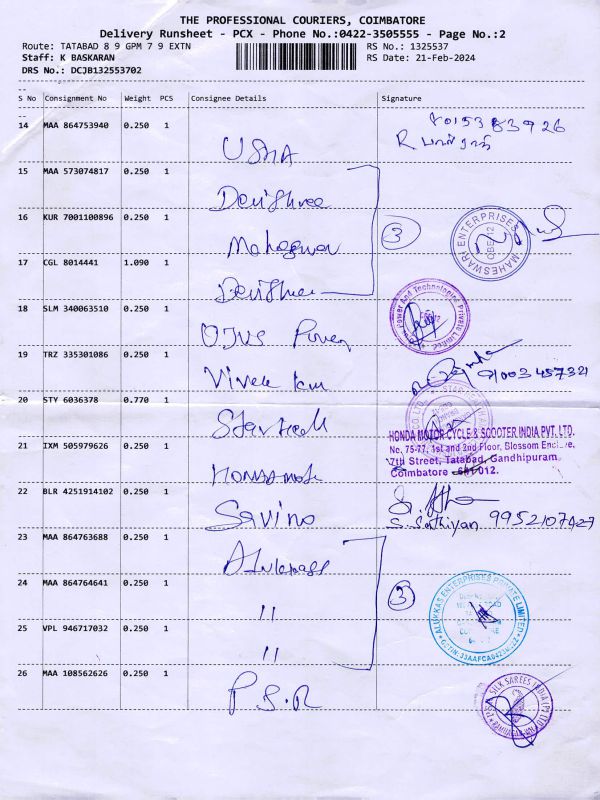 THE PROFESSIONAL COURIERS, COIMBATORE
Delivery Runsheet - PCX - Phone No.:0422-3505555 - Page No.:2
Route: TATABAD 8 9 GPM 7 9 EXTN
RS No.: 1325537
Staff: K BASKARAN
RS Date: 21-Feb-2024
DRS No.: DCJB132553702
--
S No Consignment No Weight PCS Consignee Details Signature
--
14 MAA 864753940 0.250 1
8015383926
R
USHA
15 MAA 573074817 0.250 1
Devishree
16 KUR 7001100896 0.250 1
Maheswari
3
MAHESWARI ENTERPRISES
CBE-12
17 CGL 8014441 1.090 1
Devishree
18 SLM 340063510 0.250 1
OJUS Power
Power And Technologies Private Limited
19 TRZ 335301086 0.250 1
Vivek
9100345732
20 STY 6036378 0.770 1
21 IXM 505979626 0.250 1
HONDA MOTOR CYCLE & SCOOTER INDIA PVT. LTD.
No. 75-77, 1st and 2nd Floor, Blossom Enclave,
7th Street, Tatabad, Gandhipuram,
Coimbatore - 641 012.
22 BLR 4251914102 0.250 1
Savino
S. Sathiyan 9952107427
23 MAA 864763688 0.250 1
24 MAA 864764641 0.250 1
"
3
ALUKKAS ENTERPRISES PRIVATE LIMITED
25 VPL 946717032 0.250 1
"
26 MAA 108562626 0.250 1
P.S.R
SILK SAREES INDIA (P) LTD